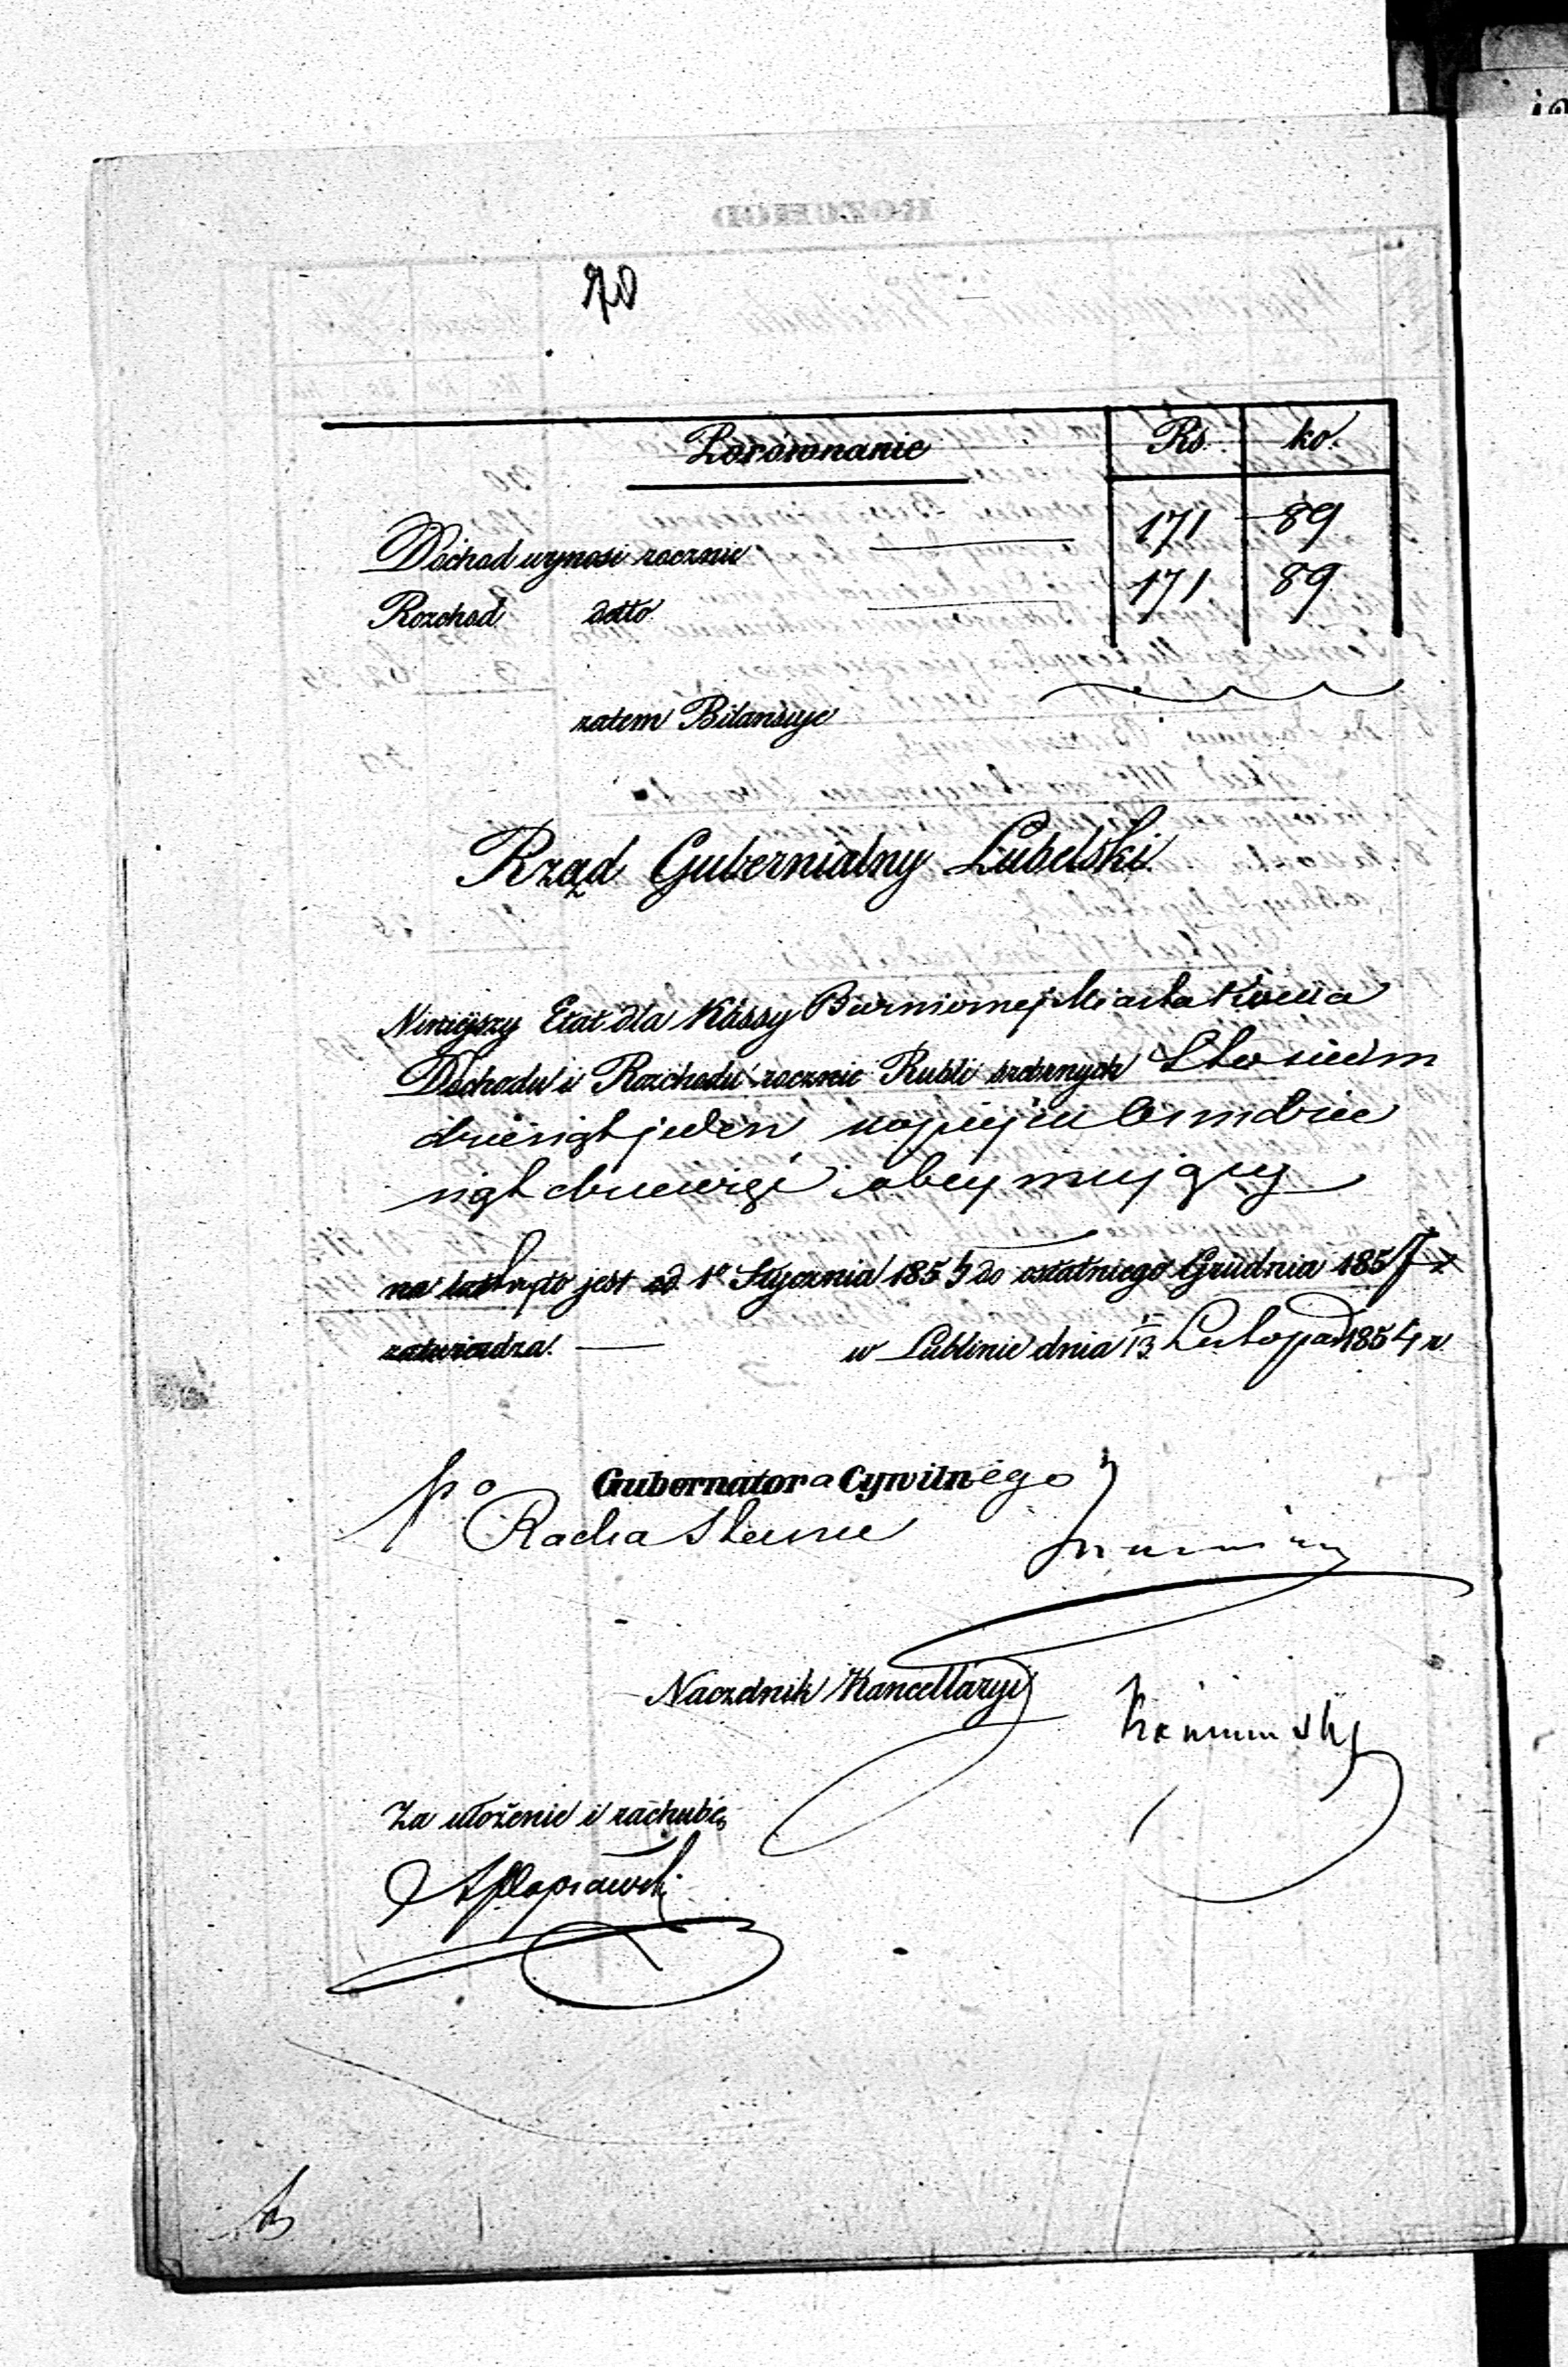 70
Porównanie Rs. ko.
Dochod wynosi rocznie 171 89
Rozchod detto 171 89
zatem Bilansuje
Rząd Gubernialny Lubelski.
Niniejszy Etat dla Kassy Miasta
Dochodu i Rozchodu rocznie Rubli srebrnych Sto siedm
dziesiąt jeden kopiejek osmdzie
siąt dziewięć obeymujący
na to jest od 1o Stycznia 1855 do ostatniego Grudnia 185
zatwierdza. w Lublinie dnia 13 Listopad 1854 r
po Gubernatora Cywilnego
Radca Stanu
Naczelnik Kancellaryi
Za ułożenie i rachubę